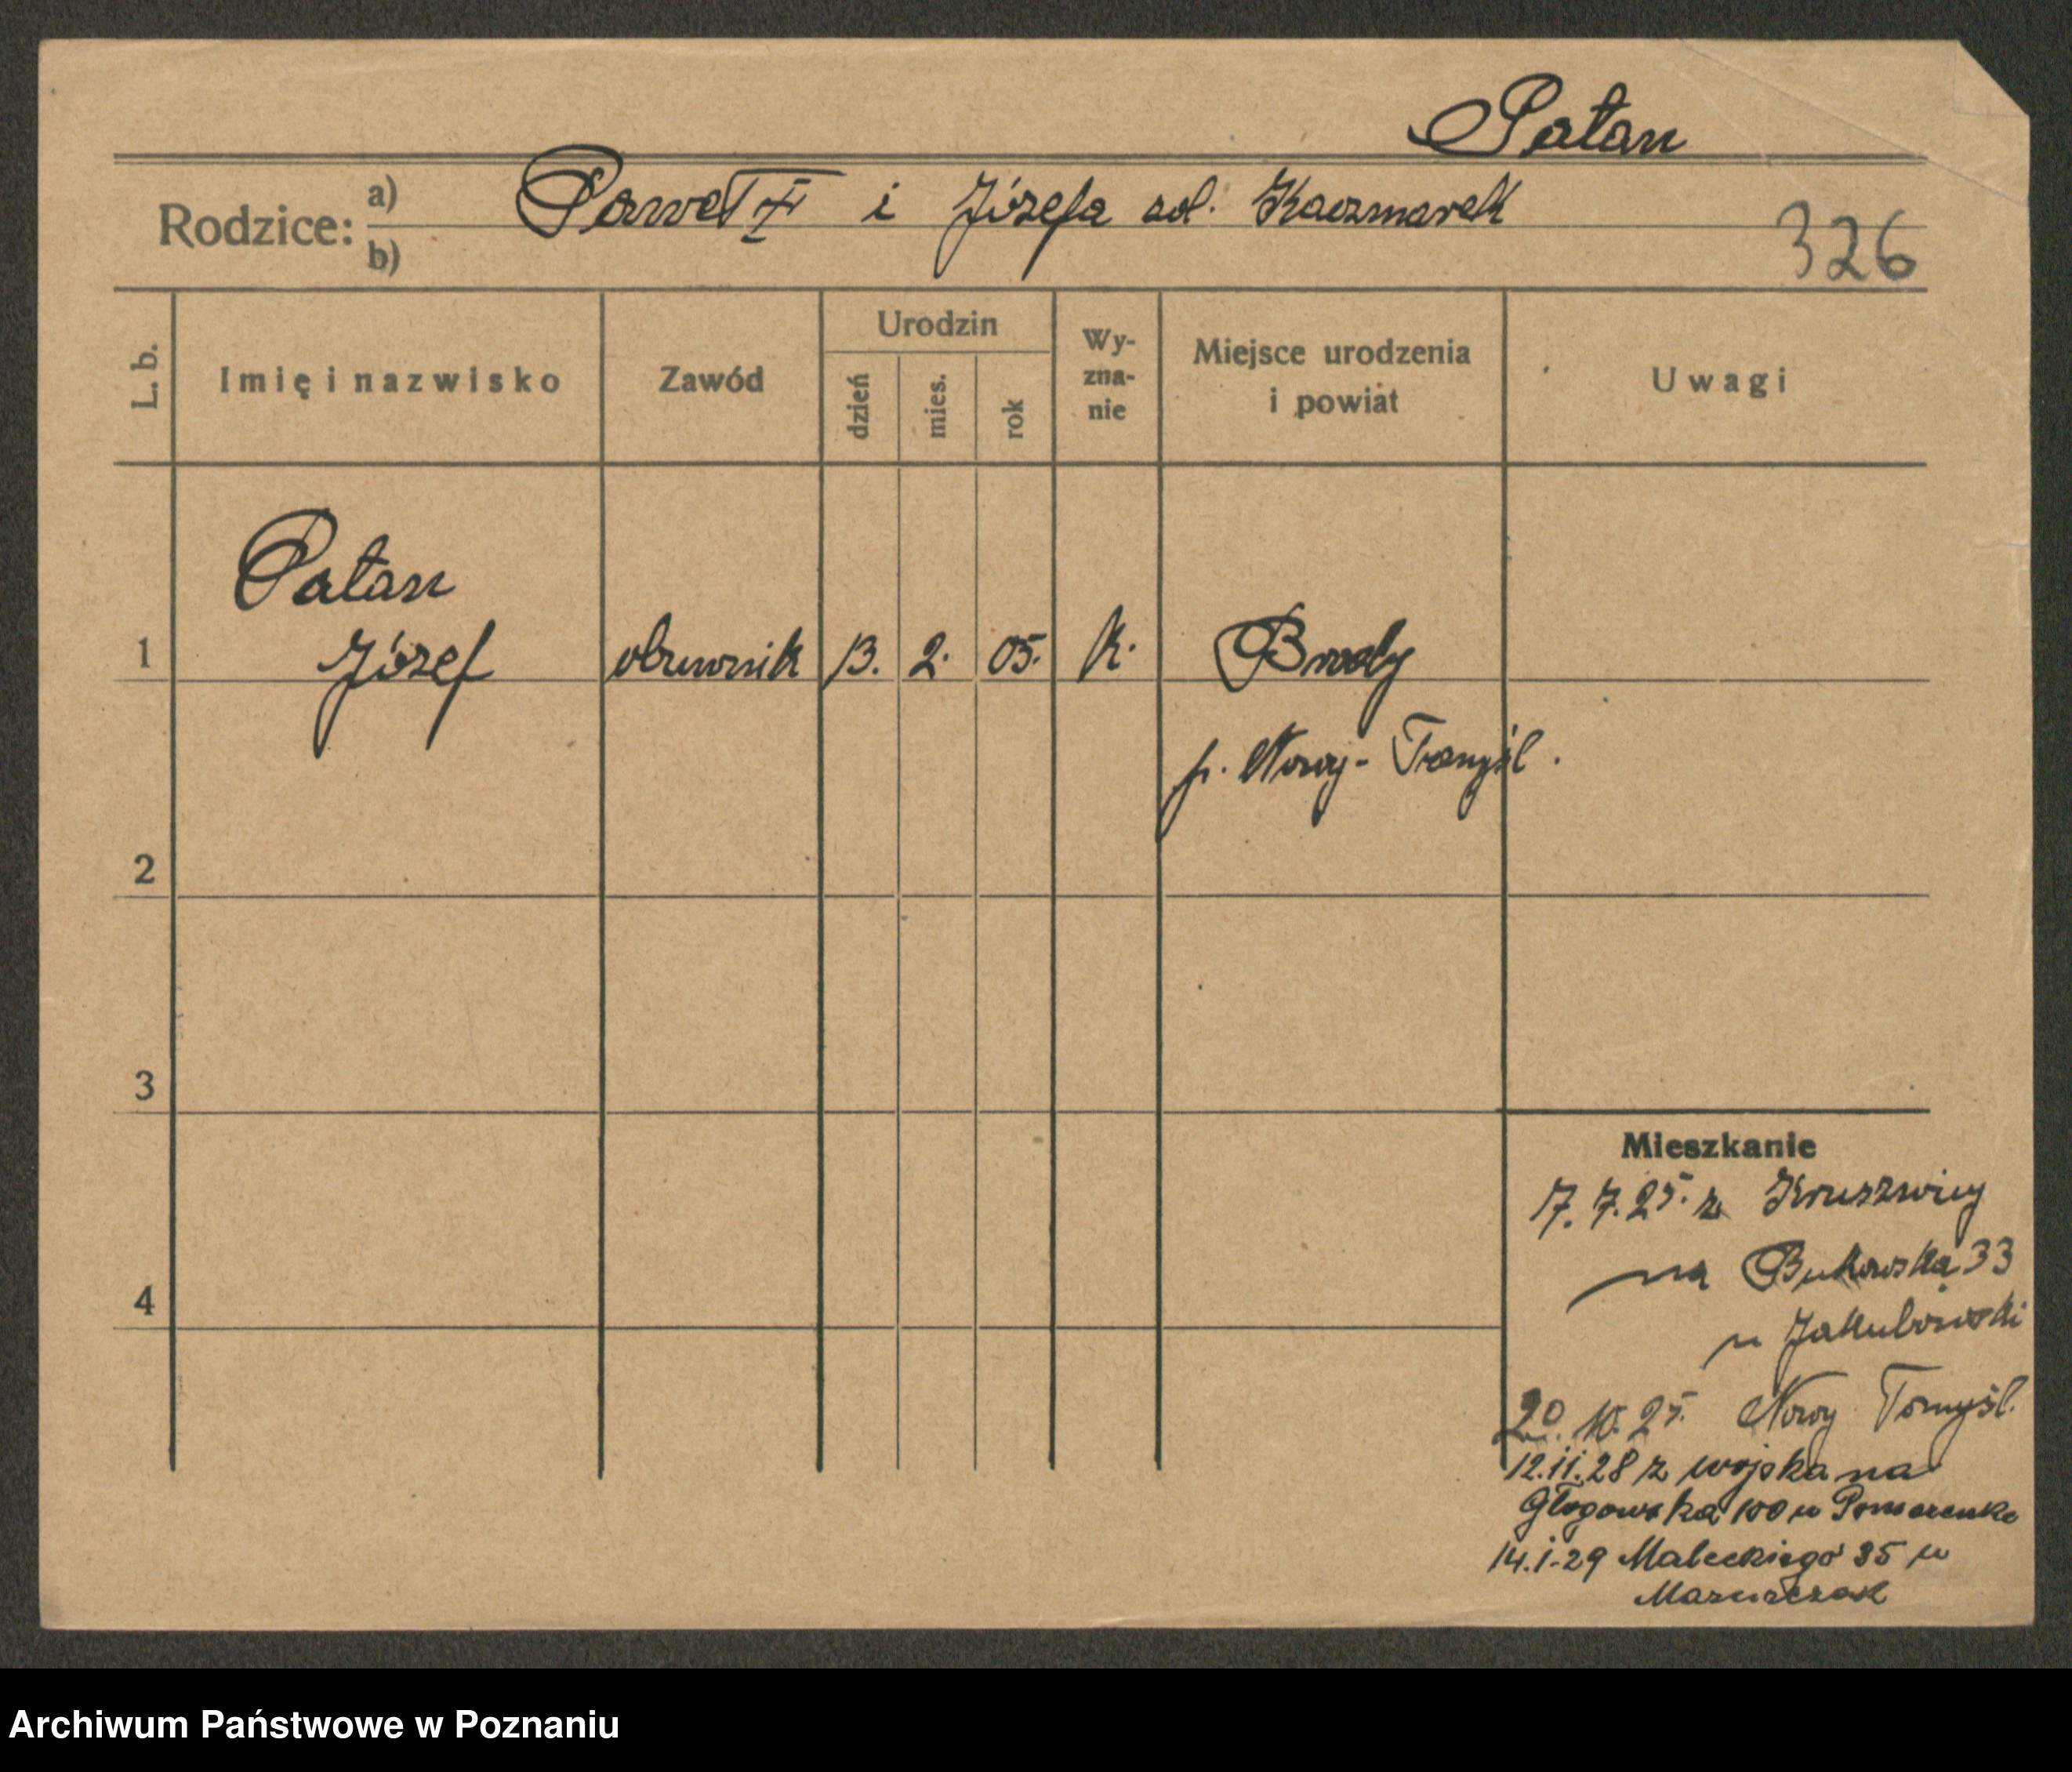 Patan
Rodzice: a) Paweł i Józefa zd. Kaczmarek
b)
326
L. b.
Imię i nazwisko
Zawód
Urodzin
dzień
mies.
rok
Wy-
zna-
nie
Miejsce urodzenia
i powiat
Uwagi
Patan
1 Józef obuwnik 13. 2. 05. K. Brody
p. Nowy-Tomyśl.
2
3
Mieszkanie
17.7.25. z Kruszwicy
na Bukowska 33
4
u Jakubowski
20.10.25. Nowy Tomyśl.
12.11.28 z wojska na
Głogowska 100 u
14.1.29 Małeckiego 35 u
Archiwum Państwowe w Poznaniu